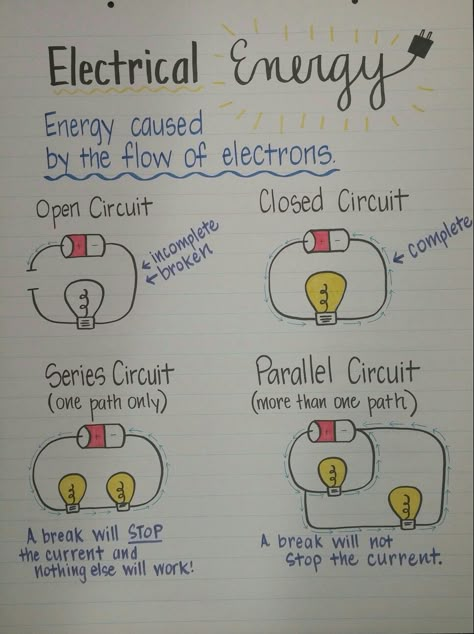 Electrical Energy
Energy caused
by the flow of electrons.
Open Circuit
+ -
incomplete
broken
Closed Circuit
+ -
complete
Series Circuit
(one path only)
+ -
A break will STOP
the current and
nothing else will work!
Parallel Circuit
(more than one path)
+ -
A break will not
stop the current.